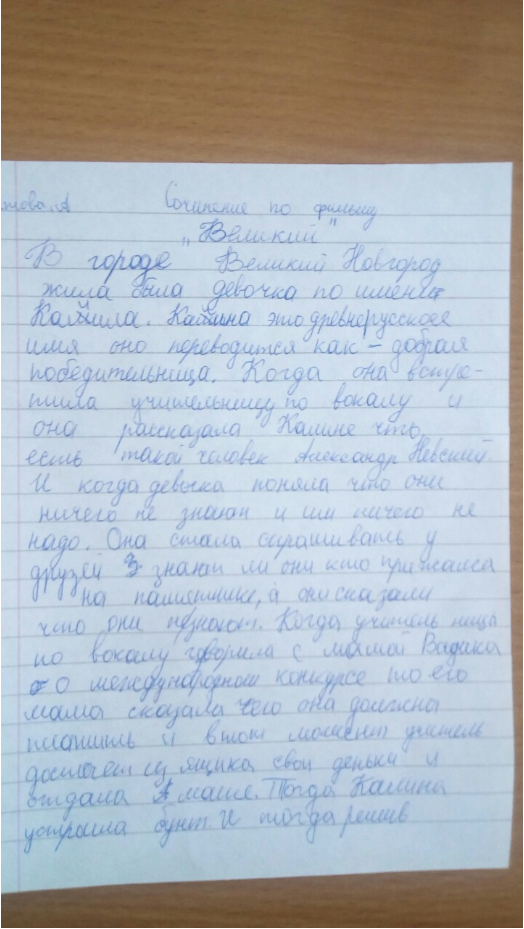 Сочинение по фильму
"Великий"
В городе Великий Новгород
жила была девочка по имени
Камила. Калина это древнерусское
имя оно переводится как - добрая
победительница. Когда она встре-
тила учительницу по вокалу и
она рассказала Калине что
есть такой человек Александр Невский.
И когда девочка поняла что они
ничего не знают и им ничего не
надо. Она стала спрашивать у
друзей знают ли они кто
на памятнике, а они сказали
что они не знают. Когда учитель ница
по вокалу говорила с мамой Вадика
о международном конкурсе то его
мама сказала чего она должна
платить и в тот момент учитель
достает из ящика свои деньки и
отдала маме. Тогда Калина
устроила бунт и тогда решив